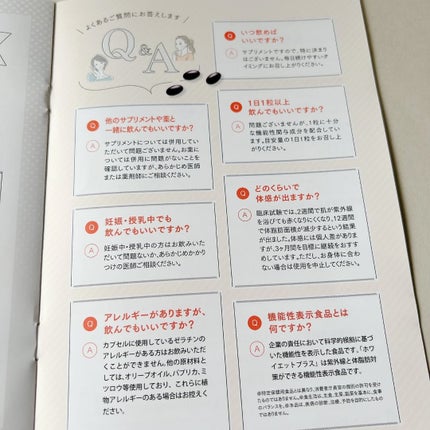 よくあるご質問にお答えします
Q&A
Q いつ飲めば
いいですか?
A サプリメントですので、特に決まり
はございません。毎日続けやすいタ
イミングにお召し上がりください。
Q 他のサプリメントや薬と
一緒に飲んでもいいですか?
A サプリメントについては併用してい
ただいて問題ございません。お薬に
ついては併用に問題がないことを
確認していますが、あらかじめ医師
または薬剤師にご相談ください。
Q 1日1粒以上
飲んでもいいですか?
A 問題ございませんが、1粒に十分
な機能性関与成分を配合してい
ます。目安量の1日1粒をお召し上
がりください。
Q 妊娠・授乳中でも
飲んでもいいですか?
A 妊娠中・授乳中の方はお飲みいた
だいて問題ないか、あらかじめかかり
つけの医師ご相談ください。
Q どのくらいで
体感が出ますか?
A 臨床試験では、2週間で肌が紫外線
を浴びても赤くなりにくくなり、12週間
で体脂肪面積が減少するという結果
が出ました。体感には個人差がありま
すが、3ヶ月間を目標に継続をおすす
めしています。ただし、お身体に合わ
ない場合は使用を中止してください。
Q アレルギーがありますが、
飲んでもいいですか?
A カプセルに使用しているゼラチンの
アレルギーがある方はお飲みいただ
くことができません。他の原材料と
しては、オリーブオイル、パプリカ、ミ
ツロウ等使用しており、これらに植
物アレルギーのある場合はお控えく
ださい。
Q 機能性表示食品とは
何ですか?
A 企業の責任において科学的根拠に基づ
いた機能性を表示した食品です。「ホワ
イエットプラス」は紫外線と体脂肪対
策ができる機能性表示食品です。